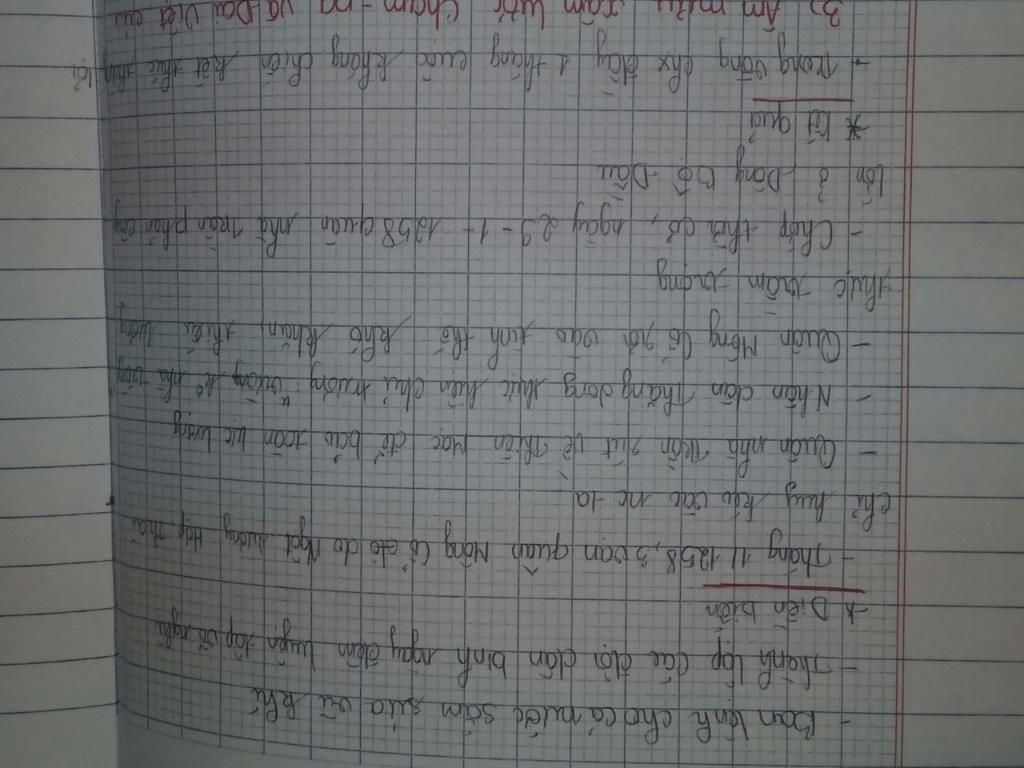 - Ban lệnh cho cả nước sắm sửa vũ khí
- Thành lập các đội dân binh ngày đêm luyện tập võ nghệ
* Diễn biến
- Tháng 1/1258, 3 vạn quân Mông Cổ do Ngột Lương Hợp Thai
chỉ huy kéo vào nc ta
- Quân nhà Trần rút về Thiên Mạc để bảo toàn lực lượng
- Nhân dân Thăng Long thực hiện chủ trương "vườn không nhà trống
- Quân Mông Cổ rơi vào tình thế khó khăn, thiếu lương
thực trầm trọng
- Chớp thời cơ, ngày 29-1-1258 quân nhà Trần phản công
lớn ở Đông Bộ Đầu
* Kết quả
- Trong vòng chx đầy 1 tháng cuộc kháng chiến kết thúc thắng lợi
3) Âm mưu xâm lược Chăm-pa và Đại Việt của